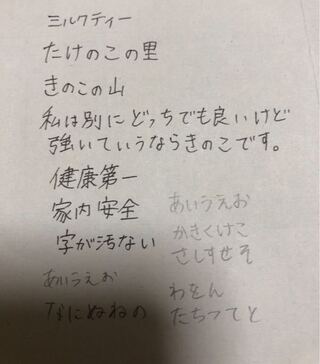 ミルクティー
たけのこの里
きのこの山
私は別にどっちでも良いけど
強いていうならきのこです。
健康第一
家内安全
字が汚ない
あいうえお
かきくけこ
さしすせそ
あいうえお
なにぬねの
わをん
たちつてと